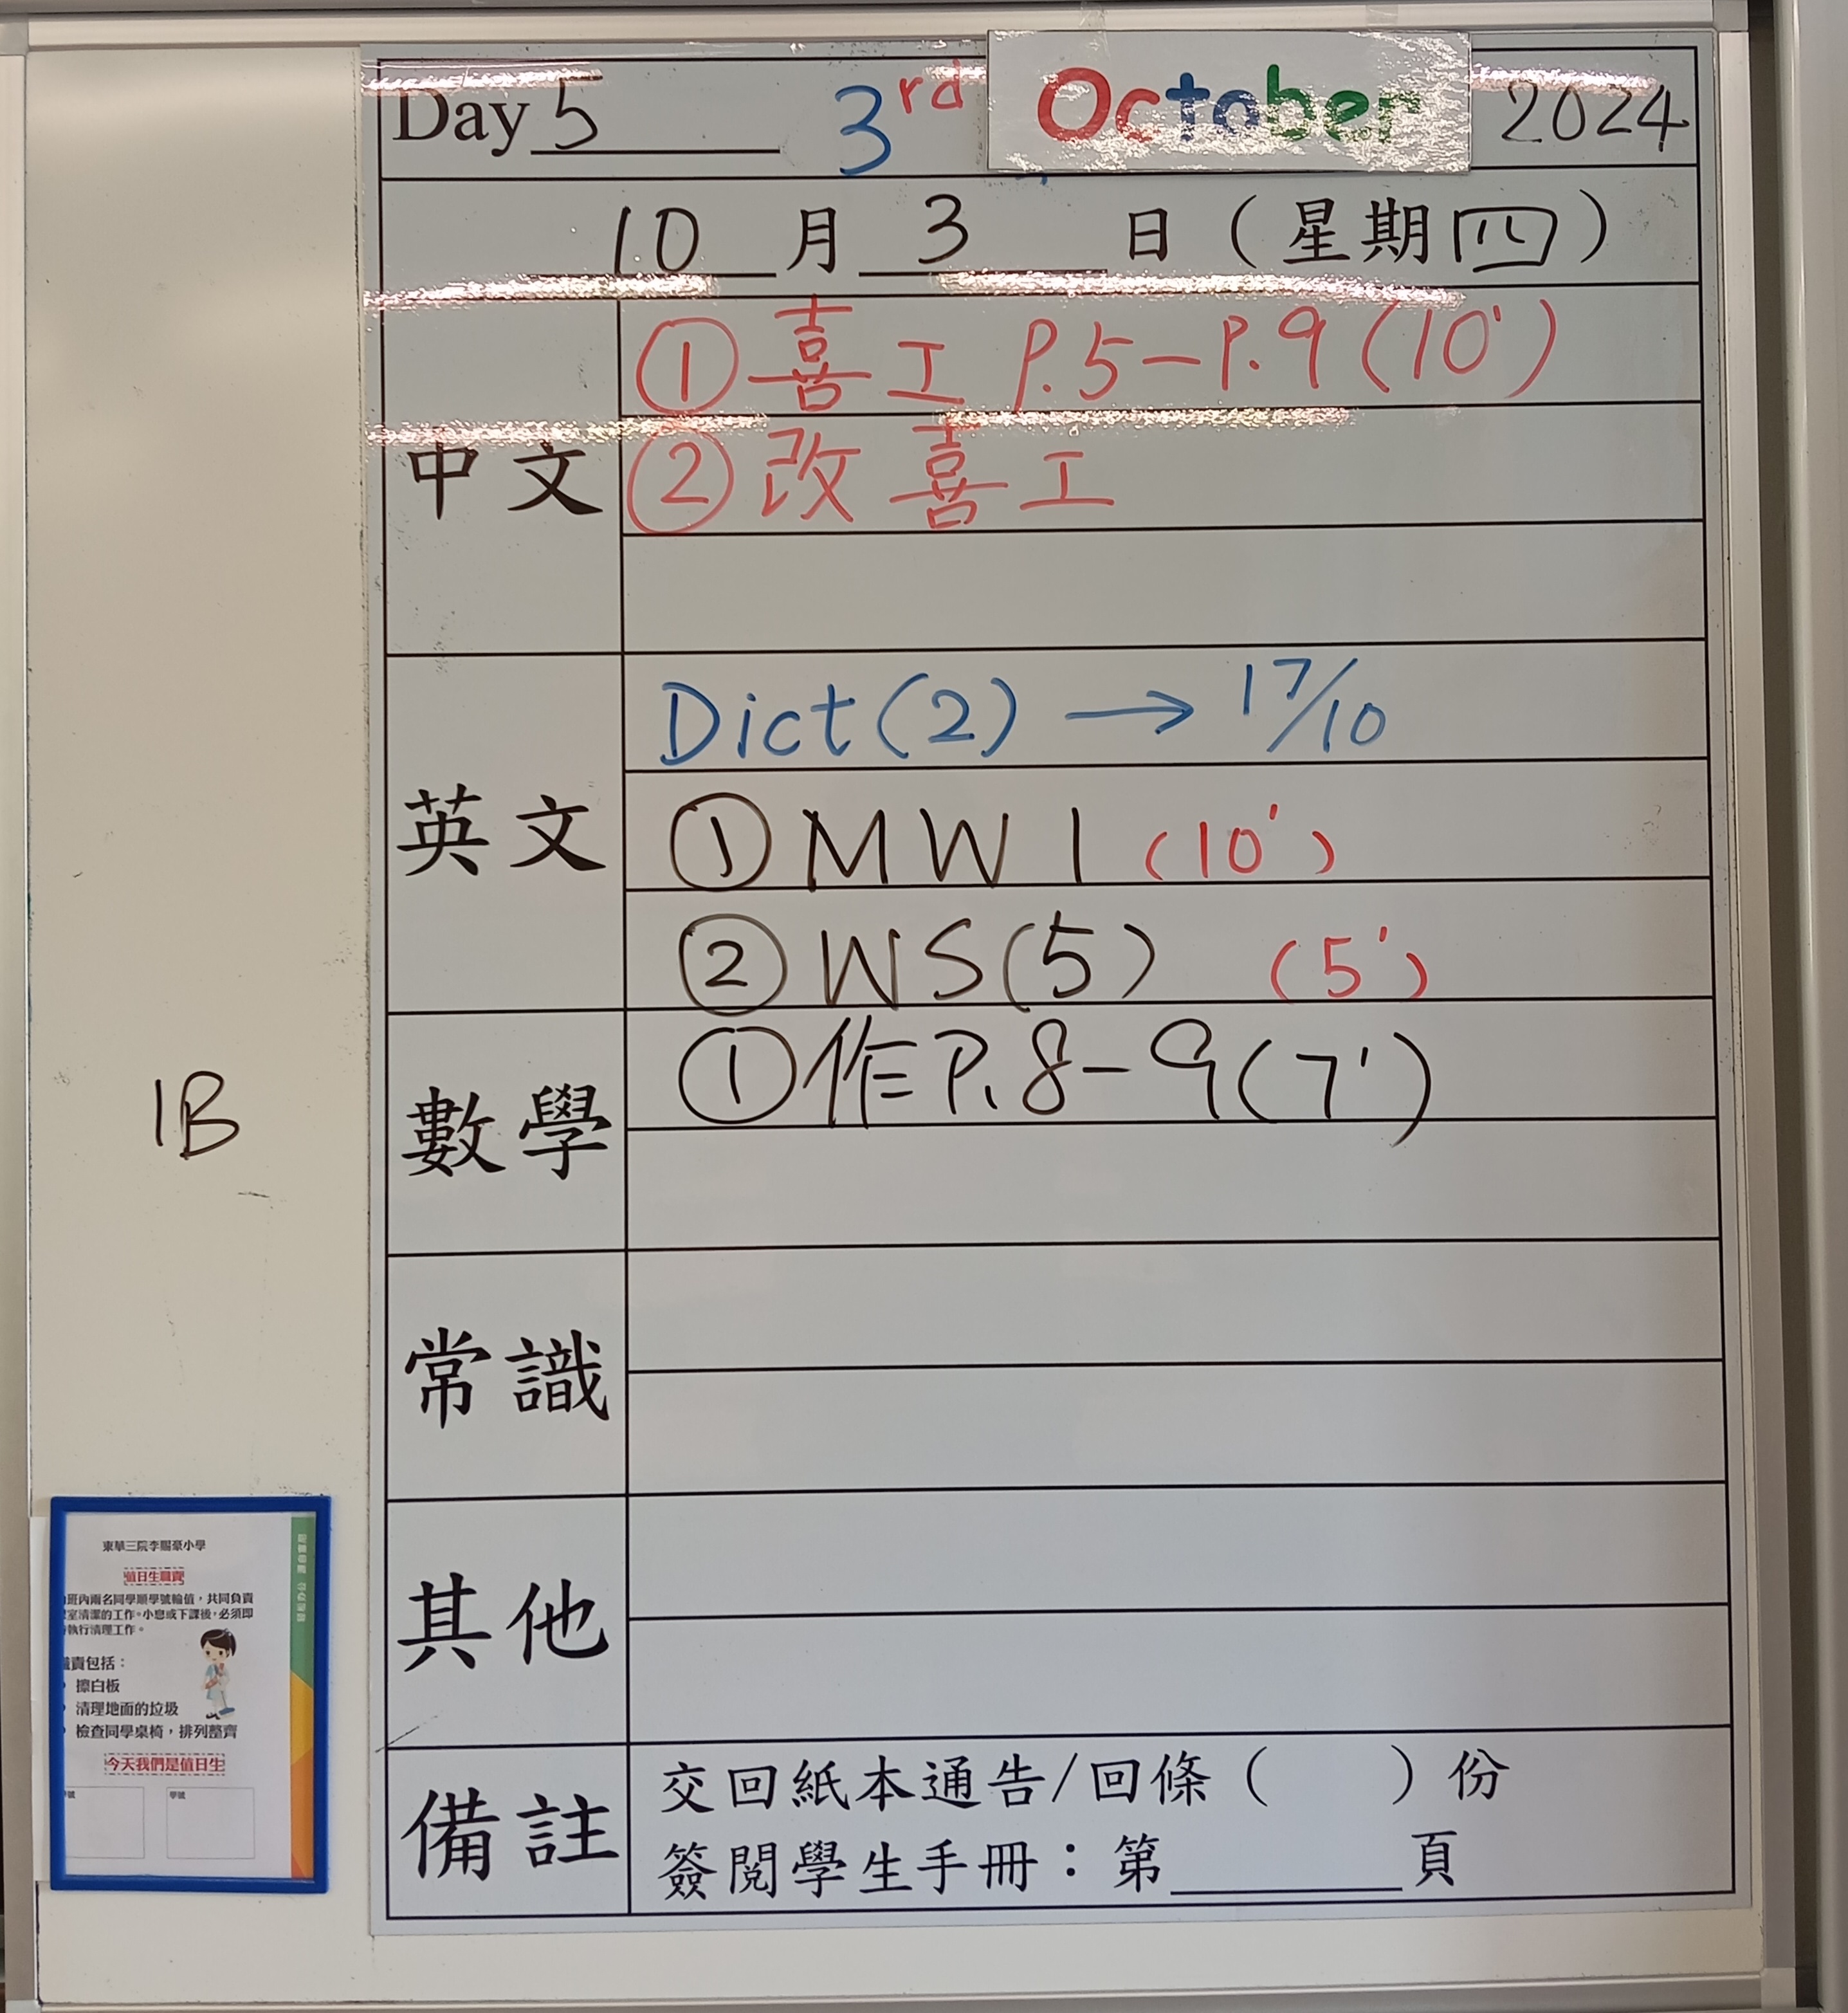 Day 5 3rd October 2024
10 月 3 日（星期四）
中文
① 喜工 P.5-P.9 (10')
② 改喜工
英文
Dict(2) → 17/10
① MW 1 (10')
② WS(5) (5')
數學
① 作 P.8-9 (7')
1B
常識
其他
備註
交回紙本通告/回條（ ）份
簽閱學生手冊：第______頁
東華三院李賜豪小學
值日生職責
班內兩名同學順學號輪值，共同負責
室清潔的工作。小息或下課後，必須即
執行清理工作。
責包括：
擦白板
清理地面的垃圾
檢查同學桌椅，排列整齊
今天我們是值日生
號 學號